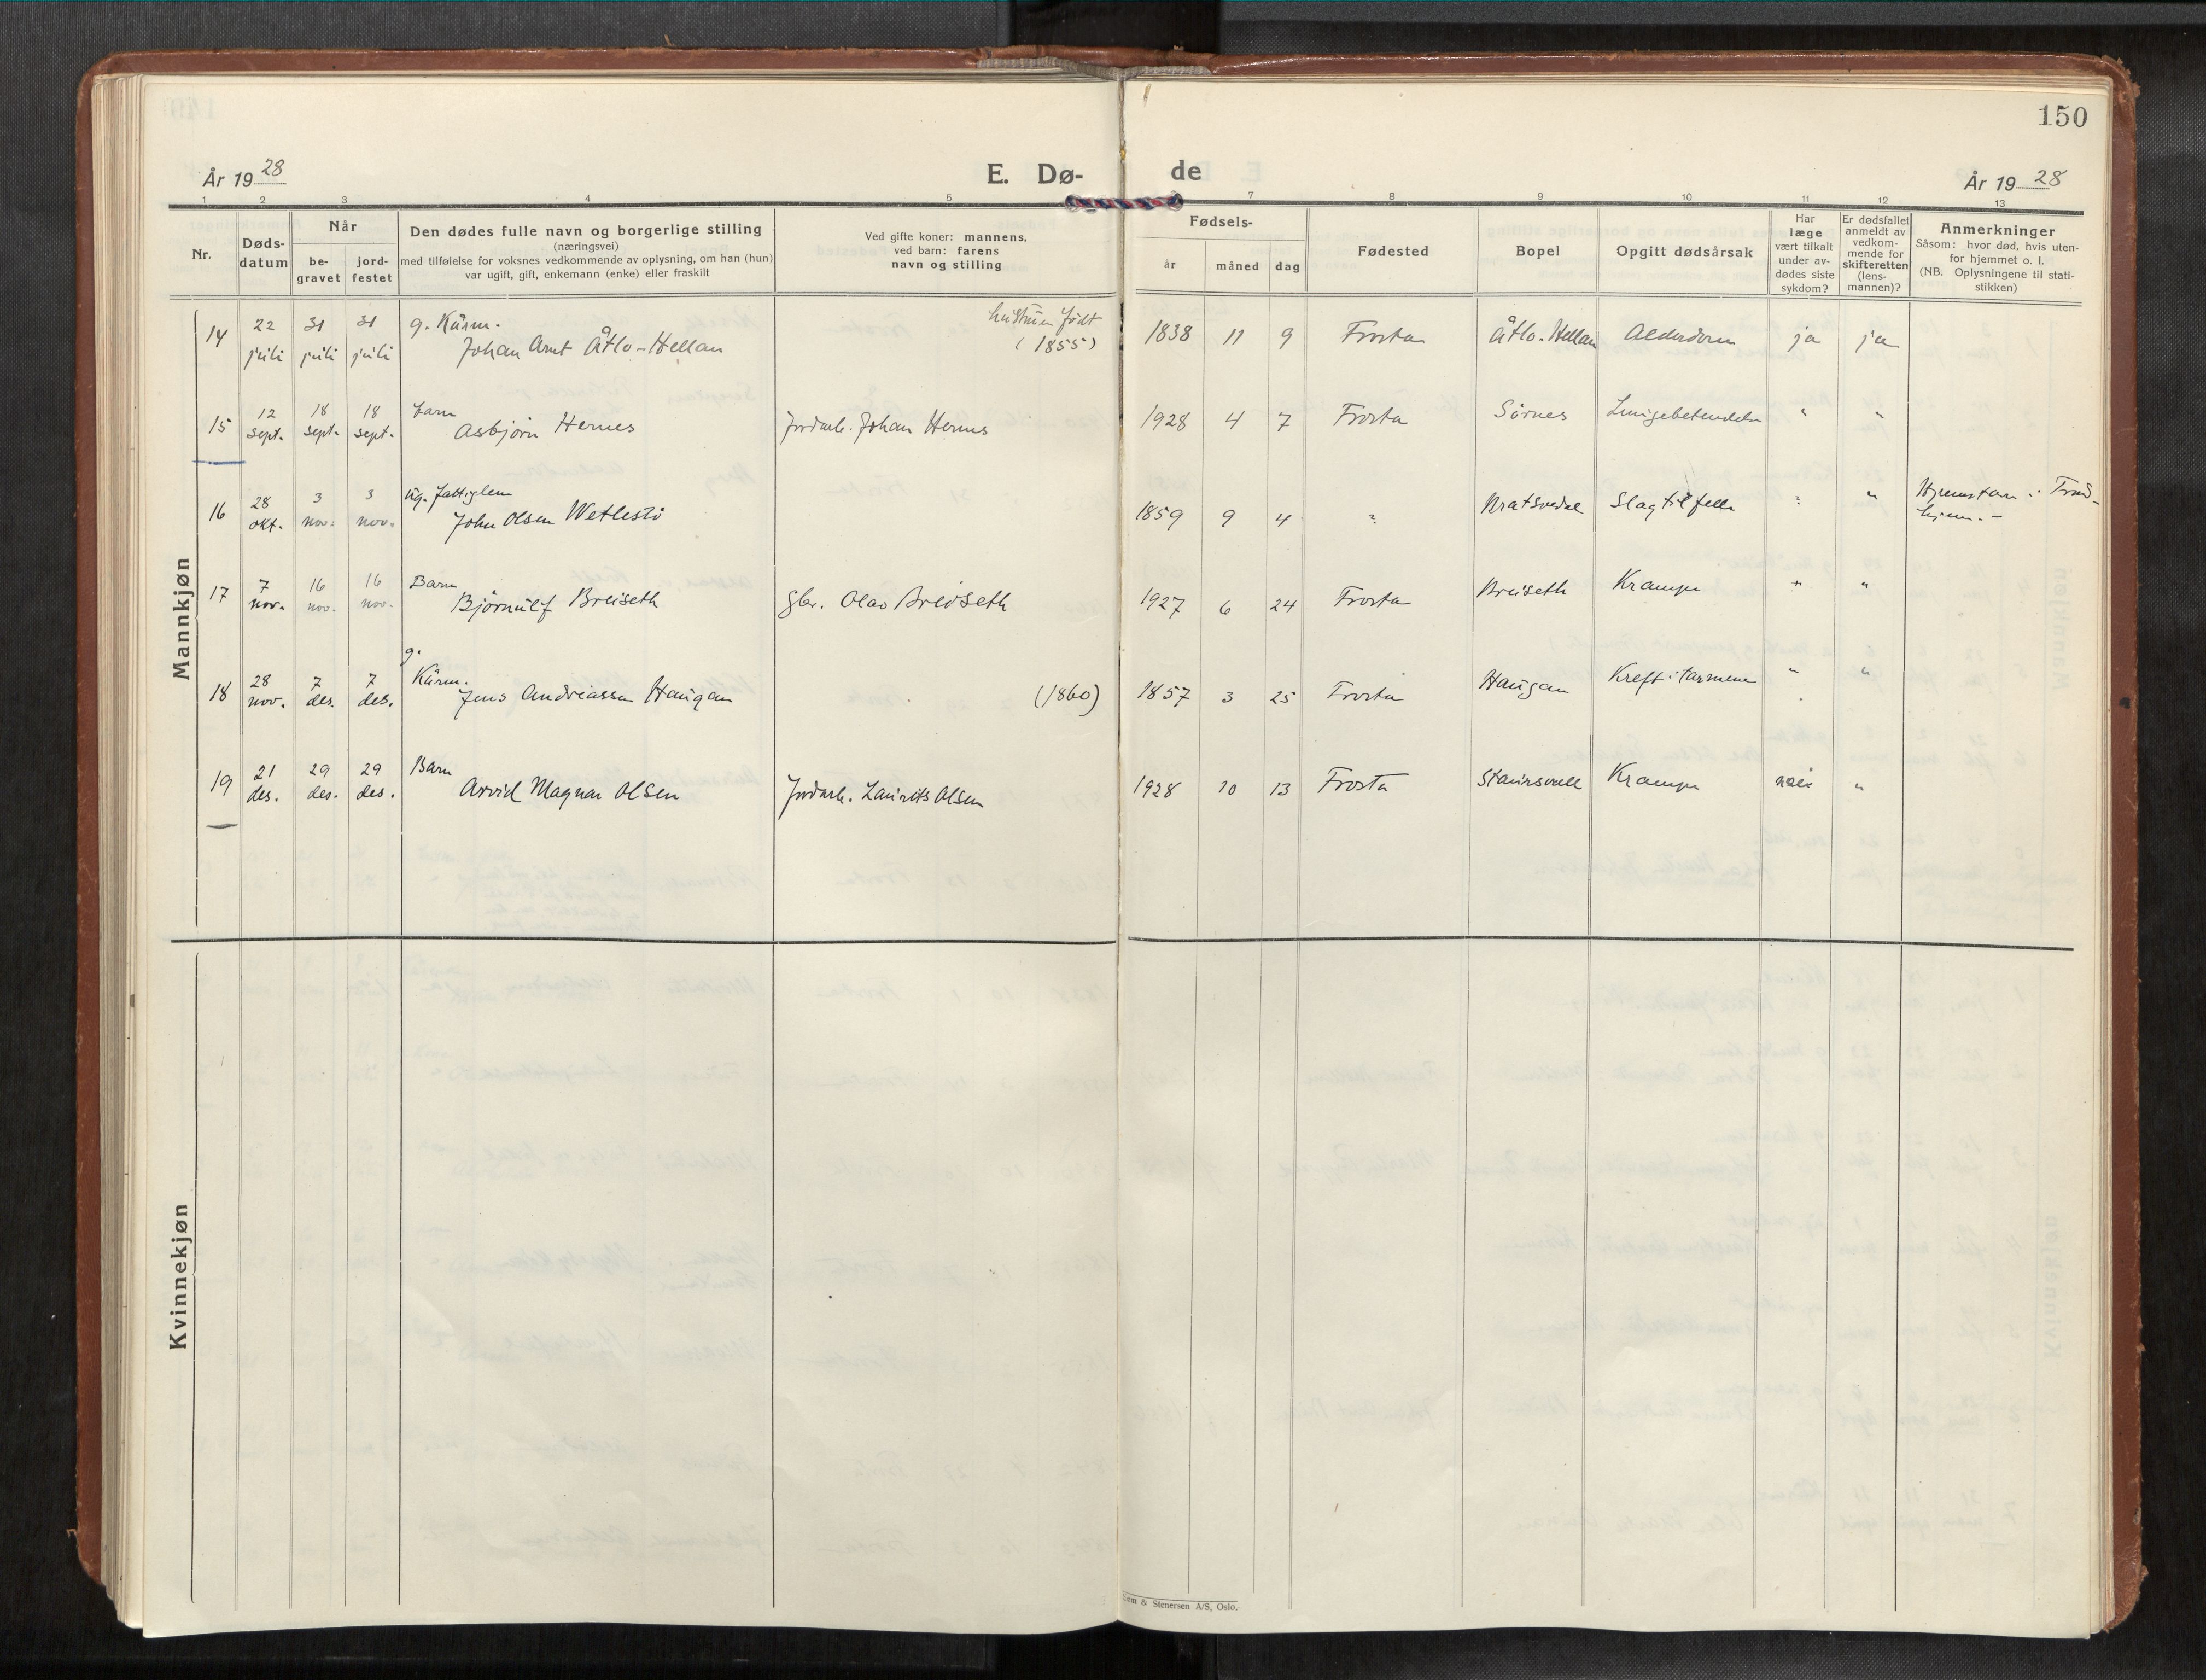 150
År 1928
E. Dø-
de
År 1928
1 2 3 4 5 7 8 9 10 11 12 13
Nr.
Døds-
datum
Når
be-
gravet
jord-
festet
Den dødes fulle navn og borgerlige stilling
(næringsvei)
med tilføielse for voksnes vedkommende av oplysning, om han (hun)
var ugift, gift, enkemann (enke) eller fraskilt
Ved gifte koner: mannens,
ved barn: farens
navn og stilling
Fødsels-
år måned dag
Fødested
Bopel
Opgitt dødsårsak
Har
læge
vært tilkalt
under av-
dødes siste
sykdom?
Er dødsfallet
anmeldt av
vedkom-
mende for
skifteretten
(lens-
mannen)?
Anmerkninger
Såsom: hvor død, hvis uten-
for hjemmet o. l.
(NB. Oplysningene til stati-
stikken)
Mannkjøn
14 22 juli 31 juli 31 juli g. Kårm. hustruen født
Johan Arnt Åtlo-Hellan (1855) 1838 11 9 Frosta Åtlo-Hellan Alderdom ja ja
15 12 sept. 18 sept. 18 sept. barn
Asbjørn Hernes Jordarb. Johan Hernes 1928 4 7 Frosta Sørnes Lungebetendelse " "
16 28 okt. 3 nov. 3 nov. ug. fattiglem
John Olsen Wetlestö 1859 9 4 " Kratsvedal Slagtilfelle " " Hjemstav i Trond-
hjem.-
17 7 nov. 16 nov. 16 nov. Barn
Bjørnulf Breiseth gbr. Olav Breiseth 1927 6 24 Frosta Breiseth Krampe " "
18 28 nov. 7 des. 7 des. g.
Kårm.
Jens Andreassen Haugan (1860) 1857 3 25 Frosta Haugan Kreft i tarmene " "
19 21 des. 29 des. 29 des. Barn
Arvid Magnar Olsen Jordarb. Laurits Olsen 1928 10 13 Frosta Krampe nei "
Kvinnekjøn
& Stenersen A/S, Oslo.